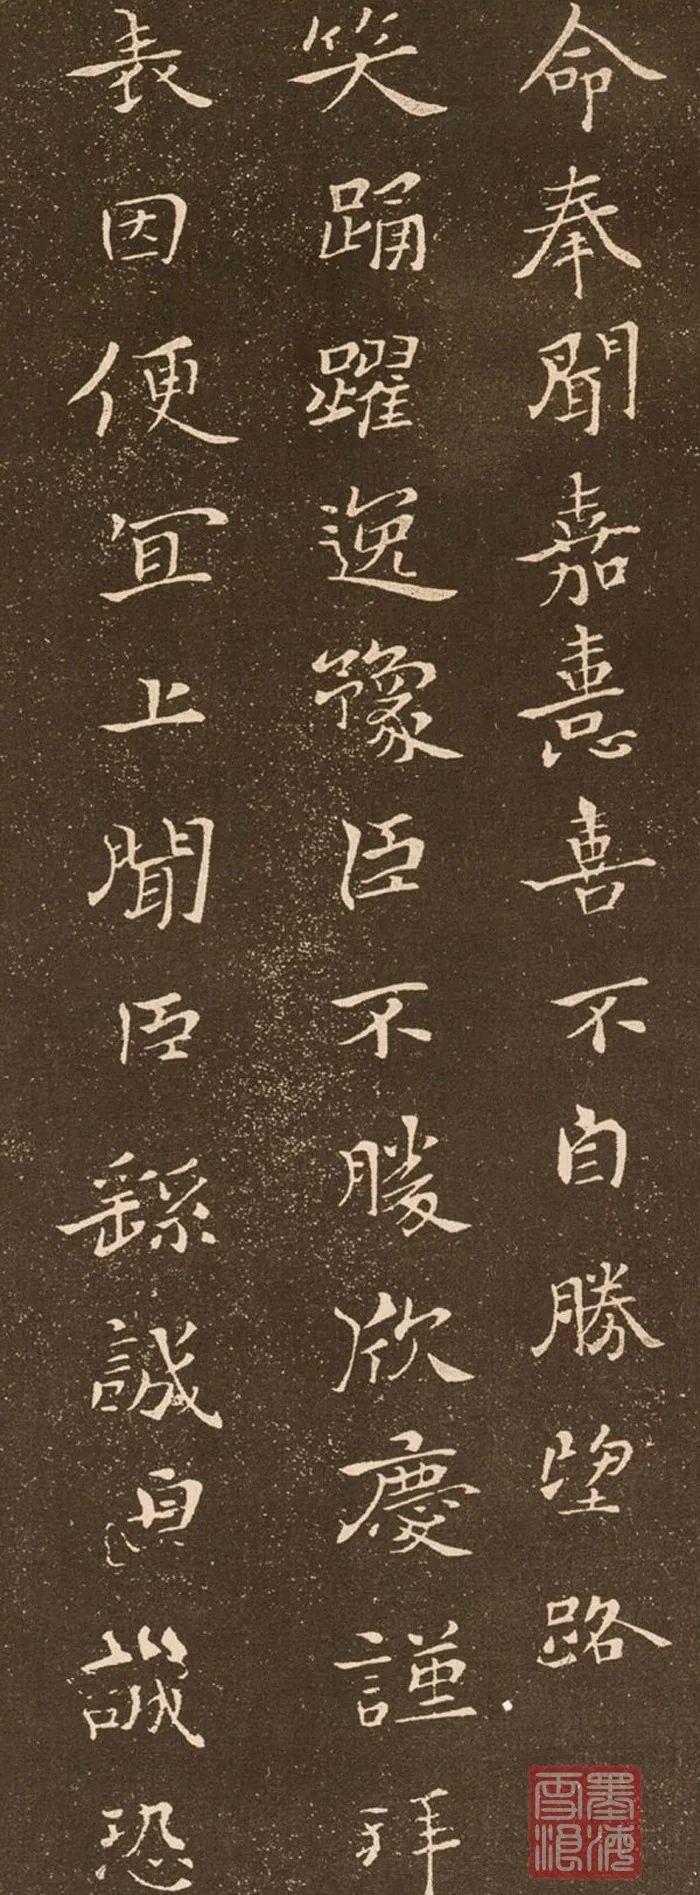 命奉聞嘉憙喜不自勝望路
笑踊躍逸豫臣不勝欣慶謹拜
表因便宜上聞臣繇誠
誠恐
墨海雪浪